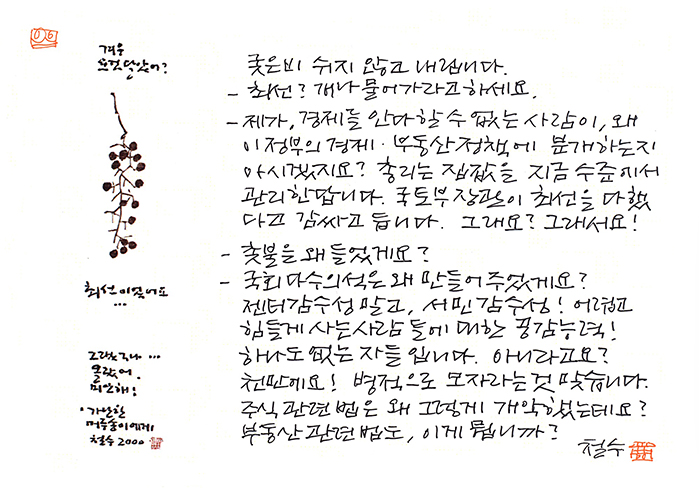 겨우
요것 달았어?
최선이었어요
...
그랬구나...
몰랐어.
미안해!
·가난한
머루송이에게
철수 2000
궂은비 쉬지 않고 내립니다.
- 최선? 개나 물어가라고 하세요.
- 제가, 경제를 안다 할 수 없는 사람이, 왜
이 정부의 경제·부동산 정책에 분개하는지
아시겠지요? 총리는 집값을 지금 수준에서
관리한답니다. 국토부 장관이 최선을 다했
다고 감싸고 듭니다. 그래요? 그래서요!
- 촛불을 왜 들었게요?
- 국회 다수의석은 왜 만들어 주었게요?
젠더감수성 말고, 서민감수성! 어렵고
힘들게 사는 사람들에 대한 공감능력!
하나도 없는 자들입니다. 아니라고요?
천만에요! 병적으로 모자라는 것 맞습니다.
주식 관련 법은 왜 그렇게 개악했는데요?
부동산 관련 법도, 이게 뭡니까?
철수